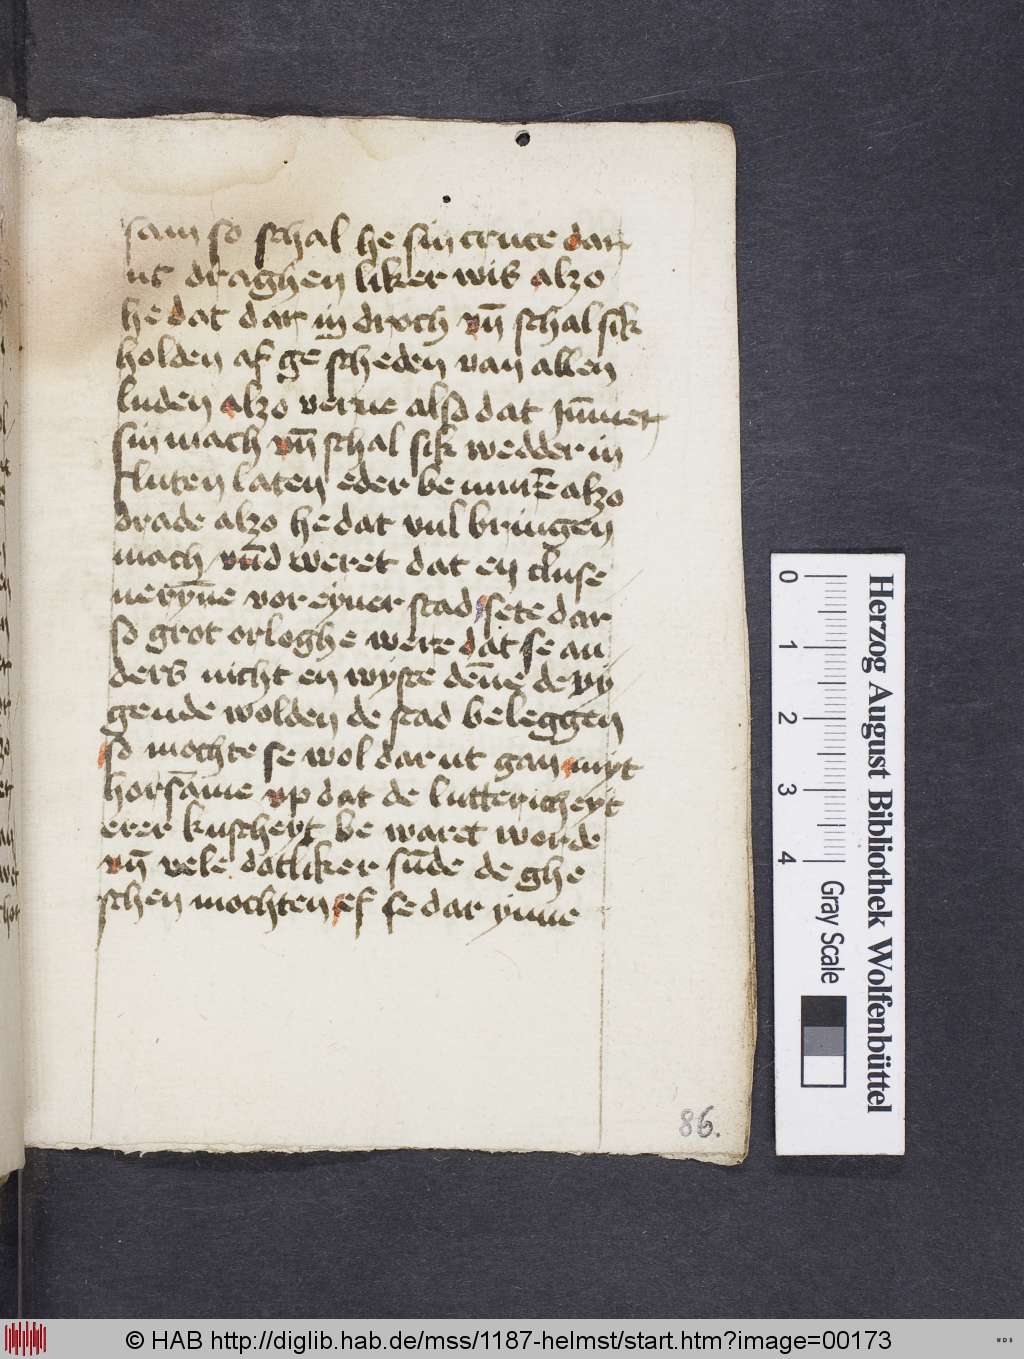 sam so schal he sin cruce dar
ut draghen liker wis alzo
he dat dar in droch vn̄ schal sik
holden af ge scheden van allen
luden alzo verne also dat jūmer
sin mach vn̄ schal sik wedder in
sluten laten eder be murē alzo
drade alzo he dat vul bringen
mach vn̄d weret dat en cluse
nerȳne vor eyner stad sete dar
so grot orloghe were dat se an
ders nicht en wyste dēne de vy
gende wolden de stad beleggen
so mochte se wol dar ut gan myt
horsāme vp dat de lutticheyt
erer kuscheyt be waret worde
vn̄ vele dotliker sūde de ghe
schen mochten ef se dar ynne
86.
0 1 2 3 4 Gray Scale
Herzog August Bibliothek Wolfenbüttel
© HAB http://diglib.hab.de/mss/1187-helmst/start.htm?image=00173